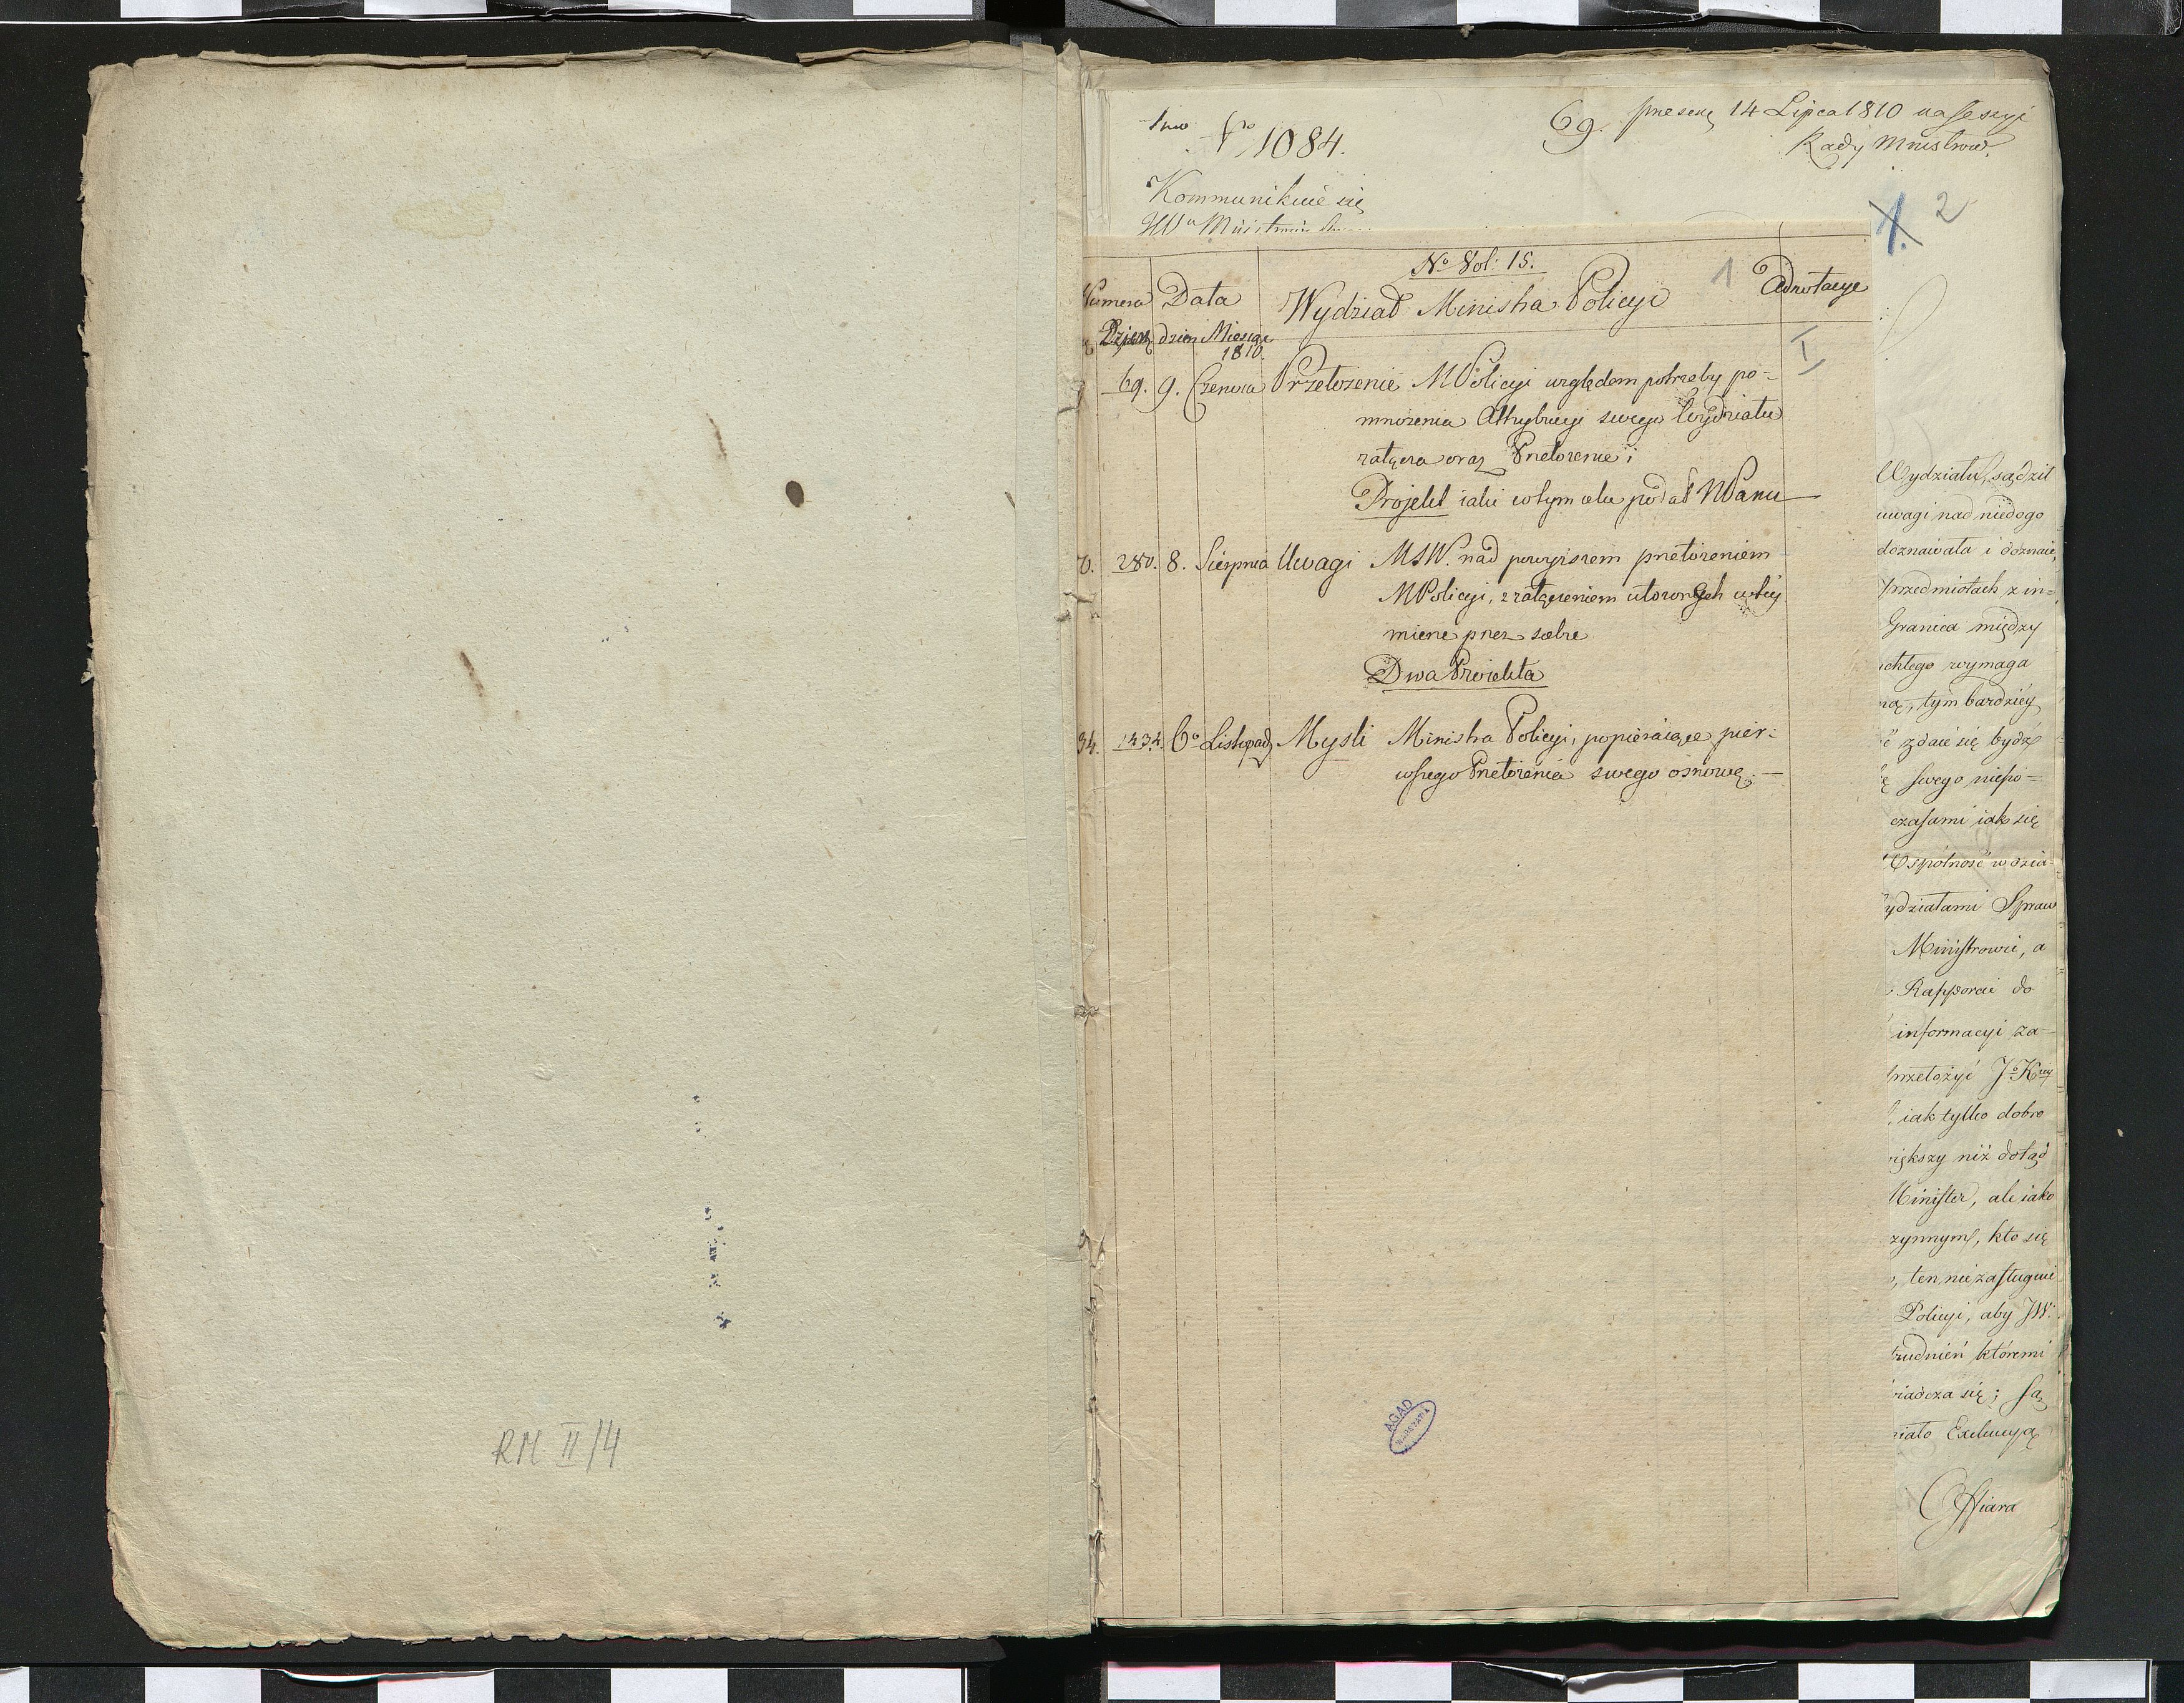 RM II/4
No 1084.
69. 14 Lipca 1810 na Sessyi
Rady Mnistrow.
Kommunikuie się
1. 2
No Vol: 15.
1
Numera Data Wydział Ministra Policyi Adnotacye
dzien Miesiąc
1810.
I
69. 9. Czerwca Przełozenie MPolicyi względem potrzeby po-
mnozenia Attrybucyi swego Wydziału
załącza oraz Przełozenie i
Projekt iaki w tym celu podał NPanu
280. 8. Sierpnia Uwagi MSW. nad powyiszem przełozeniem
MPolicyi, z załączeniem utworzonych w tey
mierze przez siebie
Dwa Proiekta
34. 1434. 6o Listopad Mysli Ministra Policyi, popieraiące pier-
wszego Przełozenia swego osnowę.—
AGAD
WARSZAWA
Wydziału, sądził
uwagi nad niedogo
doznawała i doznaie,
przedmiotach z in=
Granica między
ichtego wymaga
ną, tym bardziey
ć zdaie się bydź
ę swego niespo=
czasami iak się
Wspólność w dzia-
ydziałami Spraw
Ministrowie, a
Rapporcie do
informacyi za-
przełożyć Jo Kmci
iak tylko dobro
iększy niż dotąd
Minister, ale iako
zynnym, kto się
, ten, nie zasługuie
Policyi, aby JW.
trudnień któremi
iadcza się; są
iało Exekucyą
Offiara